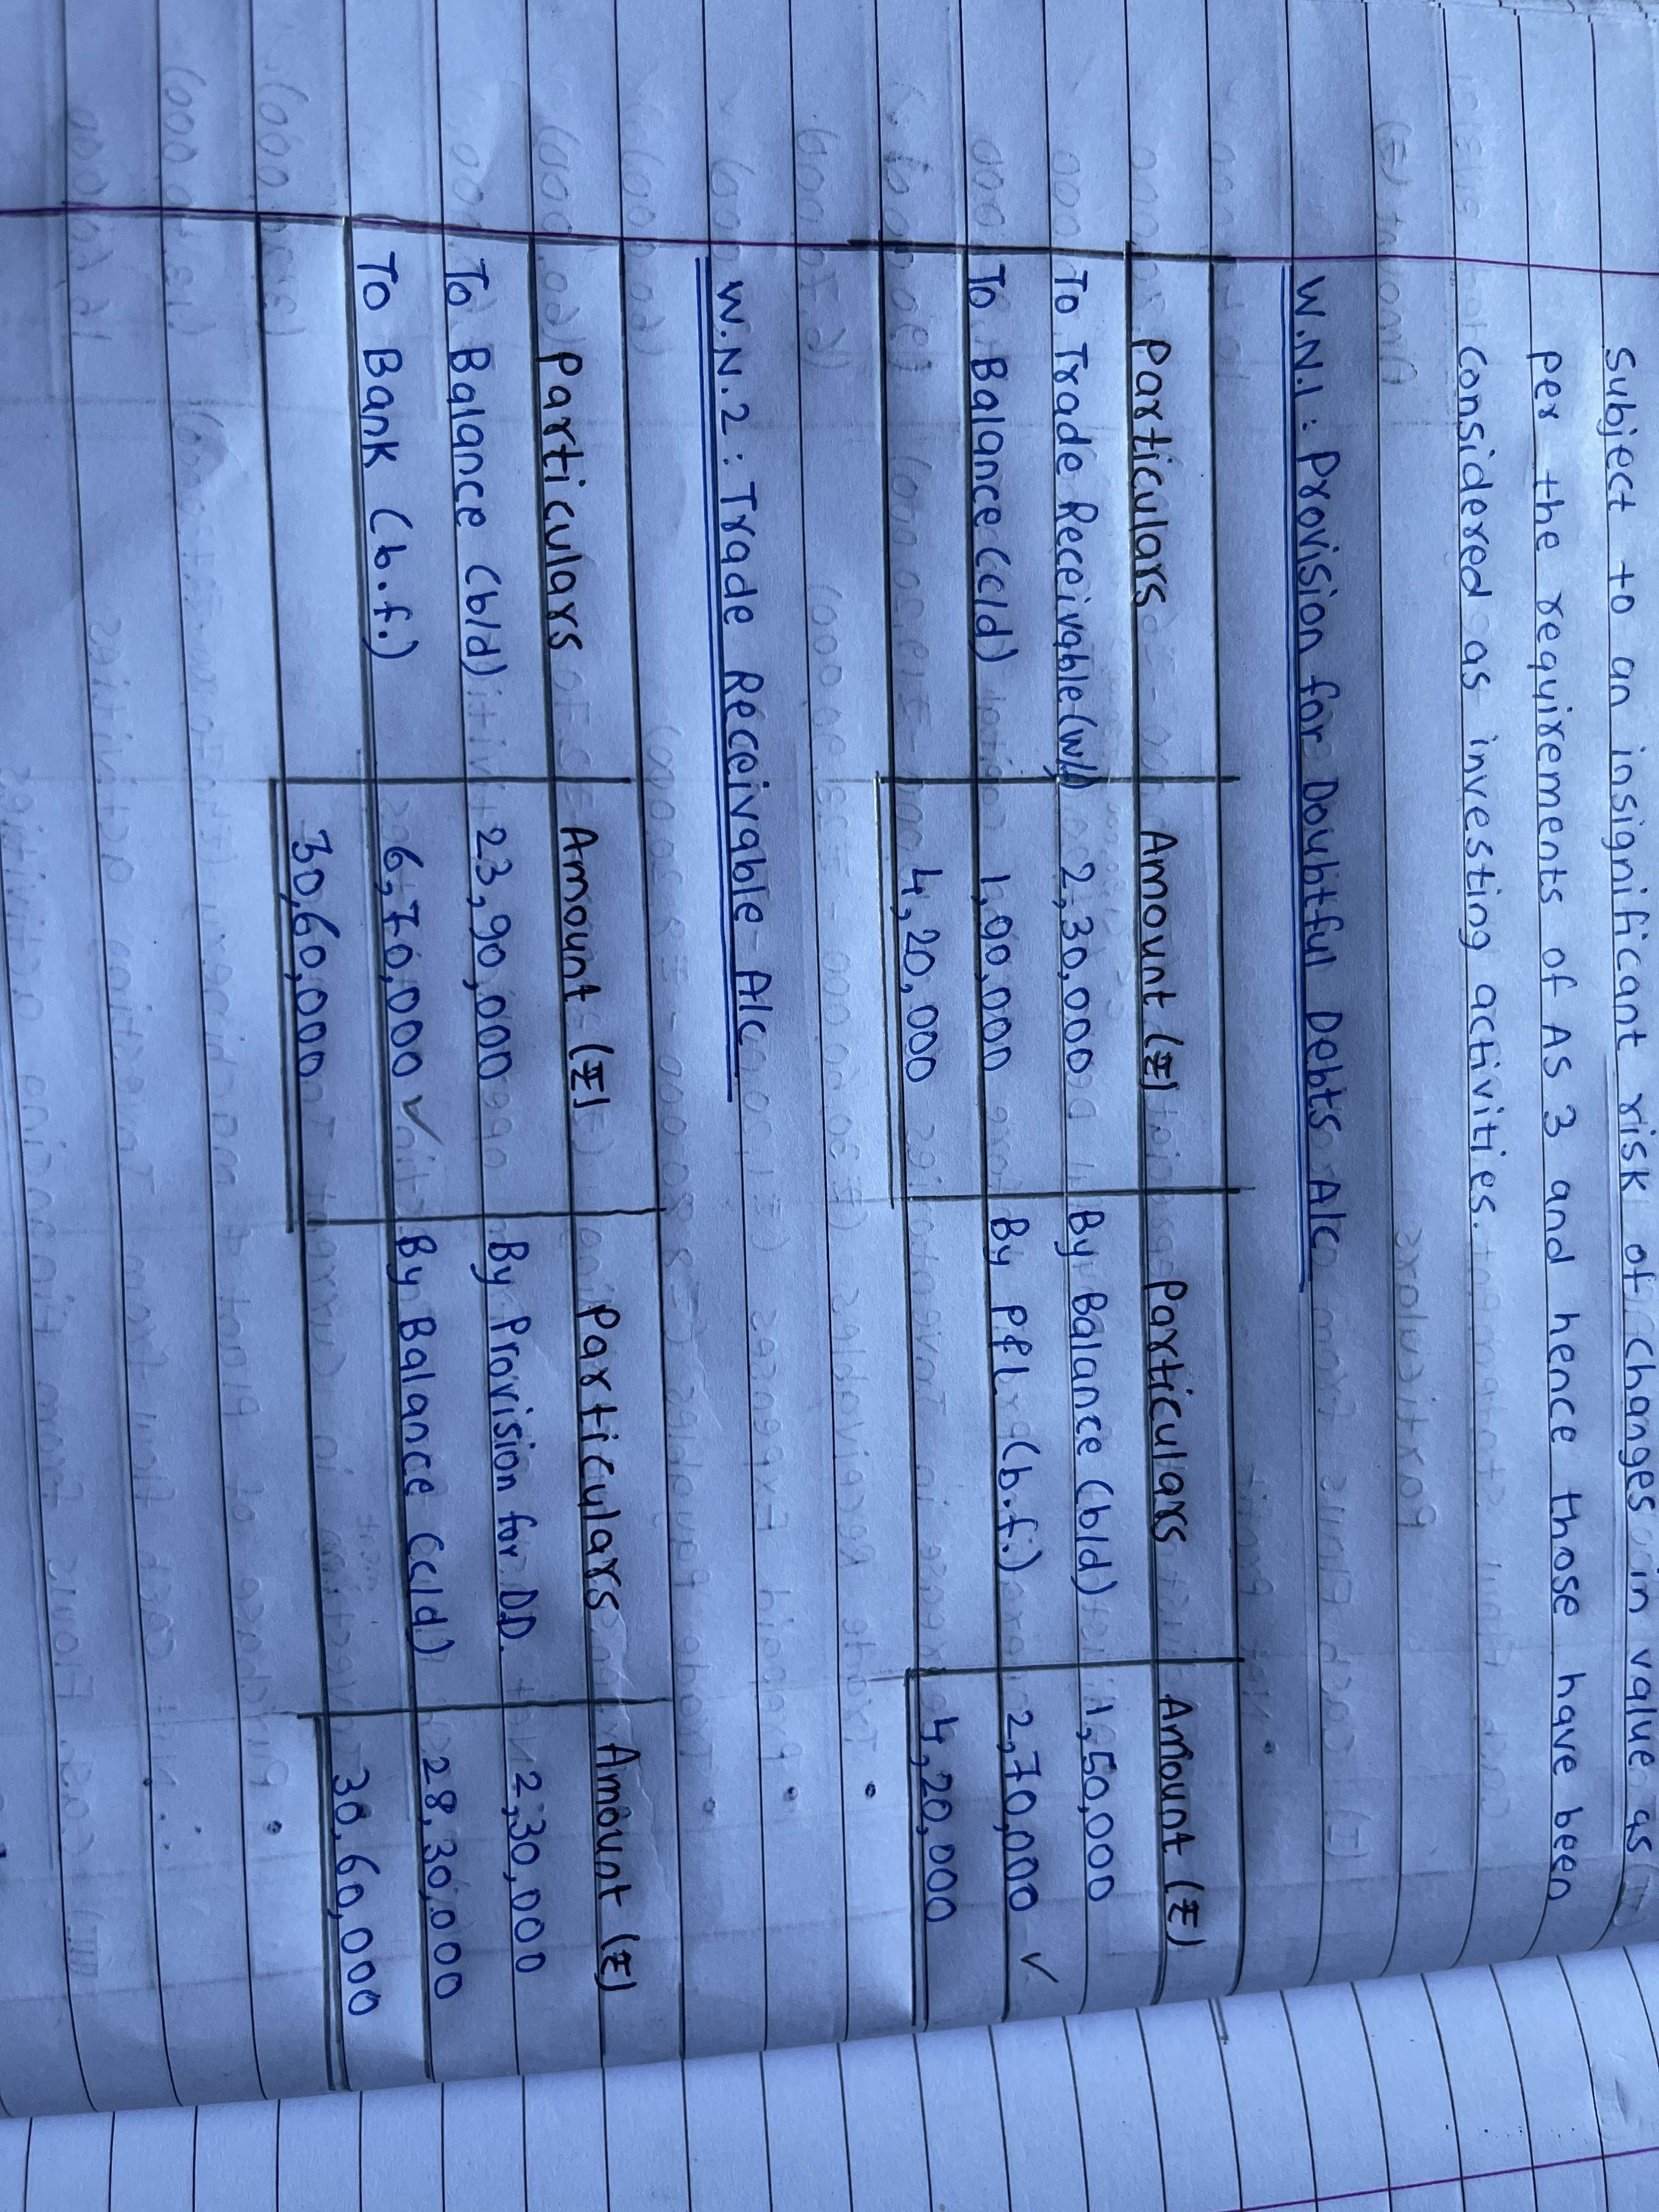 Subject to an insignificant risk of changes in value as
per the requirements of AS 3 and hence those have been
considered as investing activities.
W.N.1 : Provision for Doubtful Debts A/c
Particulars Amount (₹) Particulars Amount (₹)
To Trade Receivable (w/f) 2,30,000 By Balance (b/d) 1,50,000
To Balance (c/d) 1,90,000 By P&L (b.f.) 2,70,000 ✓
4,20,000 4,20,000
W.N.2 : Trade Receivable A/c
Particulars Amount (₹) Particulars Amount (₹)
To Balance (b/d) 23,90,000 By Provision for DD. 2,30,000
To Bank (b.f.) 6,70,000 ✓ By Balance (c/d) 28,30,000
30,60,000 30,60,000